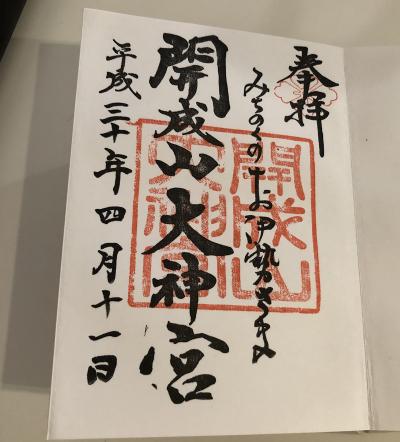 奉拝
みちのくのお伊勢さま
開成山大神宮
平成三十年四月十一日
開成山大神宮